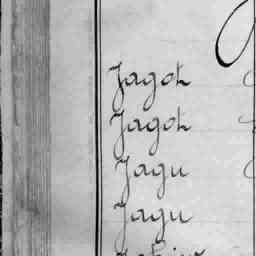 Jagot
Jagot
Jagu
Jagu